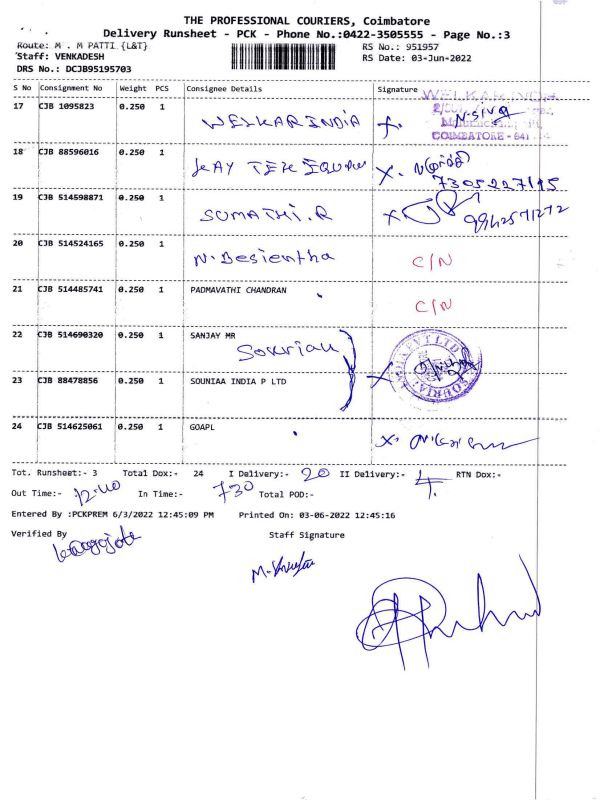 THE PROFESSIONAL COURIERS, Coimbatore
Delivery Runsheet - PCK - Phone No.:0422-3505555 - Page No.:3
Route: M . M PATTI {L&T}
RS No.: 951957
Staff: VENKADESH
RS Date: 03-Jun-2022
DRS No.: DCJB95195703
S No Consignment No Weight PCS Consignee Details Signature
17 CJB 1095823 0.250 1 WELKAR INDIA N.Siva
WELKAR INDIA
COIMBATORE - 641
18 CJB 88596016 0.250 1 KAY TEX
7305227195
19 CJB 514598871 0.250 1 SUMATHI.R
9942571272
20 CJB 514524165 0.250 1 N. C/N
21 CJB 514485741 0.250 1 PADMAVATHI CHANDRAN C/N
22 CJB 514690320 0.250 1 SANJAY MR
23 CJB 88478856 0.250 1 SOUNIAA INDIA P LTD
24 CJB 514625061 0.250 1 GOAPL
Tot. Runsheet:- 3 Total Dox:- 24 I Delivery:- 20 II Delivery:- 4. RTN Dox:-
Out Time:- 12.40 In Time:- 730 Total POD:-
Entered By :PCKPREM 6/3/2022 12:45:09 PM Printed On: 03-06-2022 12:45:16
Verified By Staff Signature